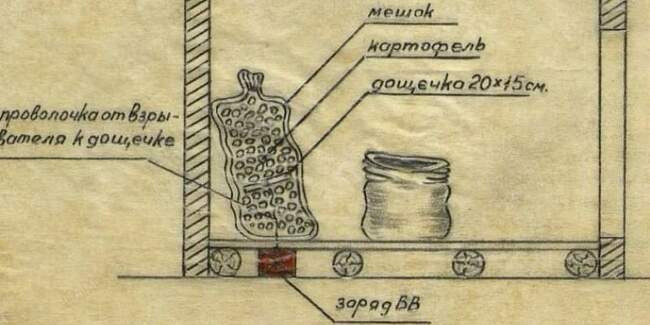 мешок
картофель
дощечка 20×15см.
проволочка от взры-
вателя к дощечке
заряд ВВ